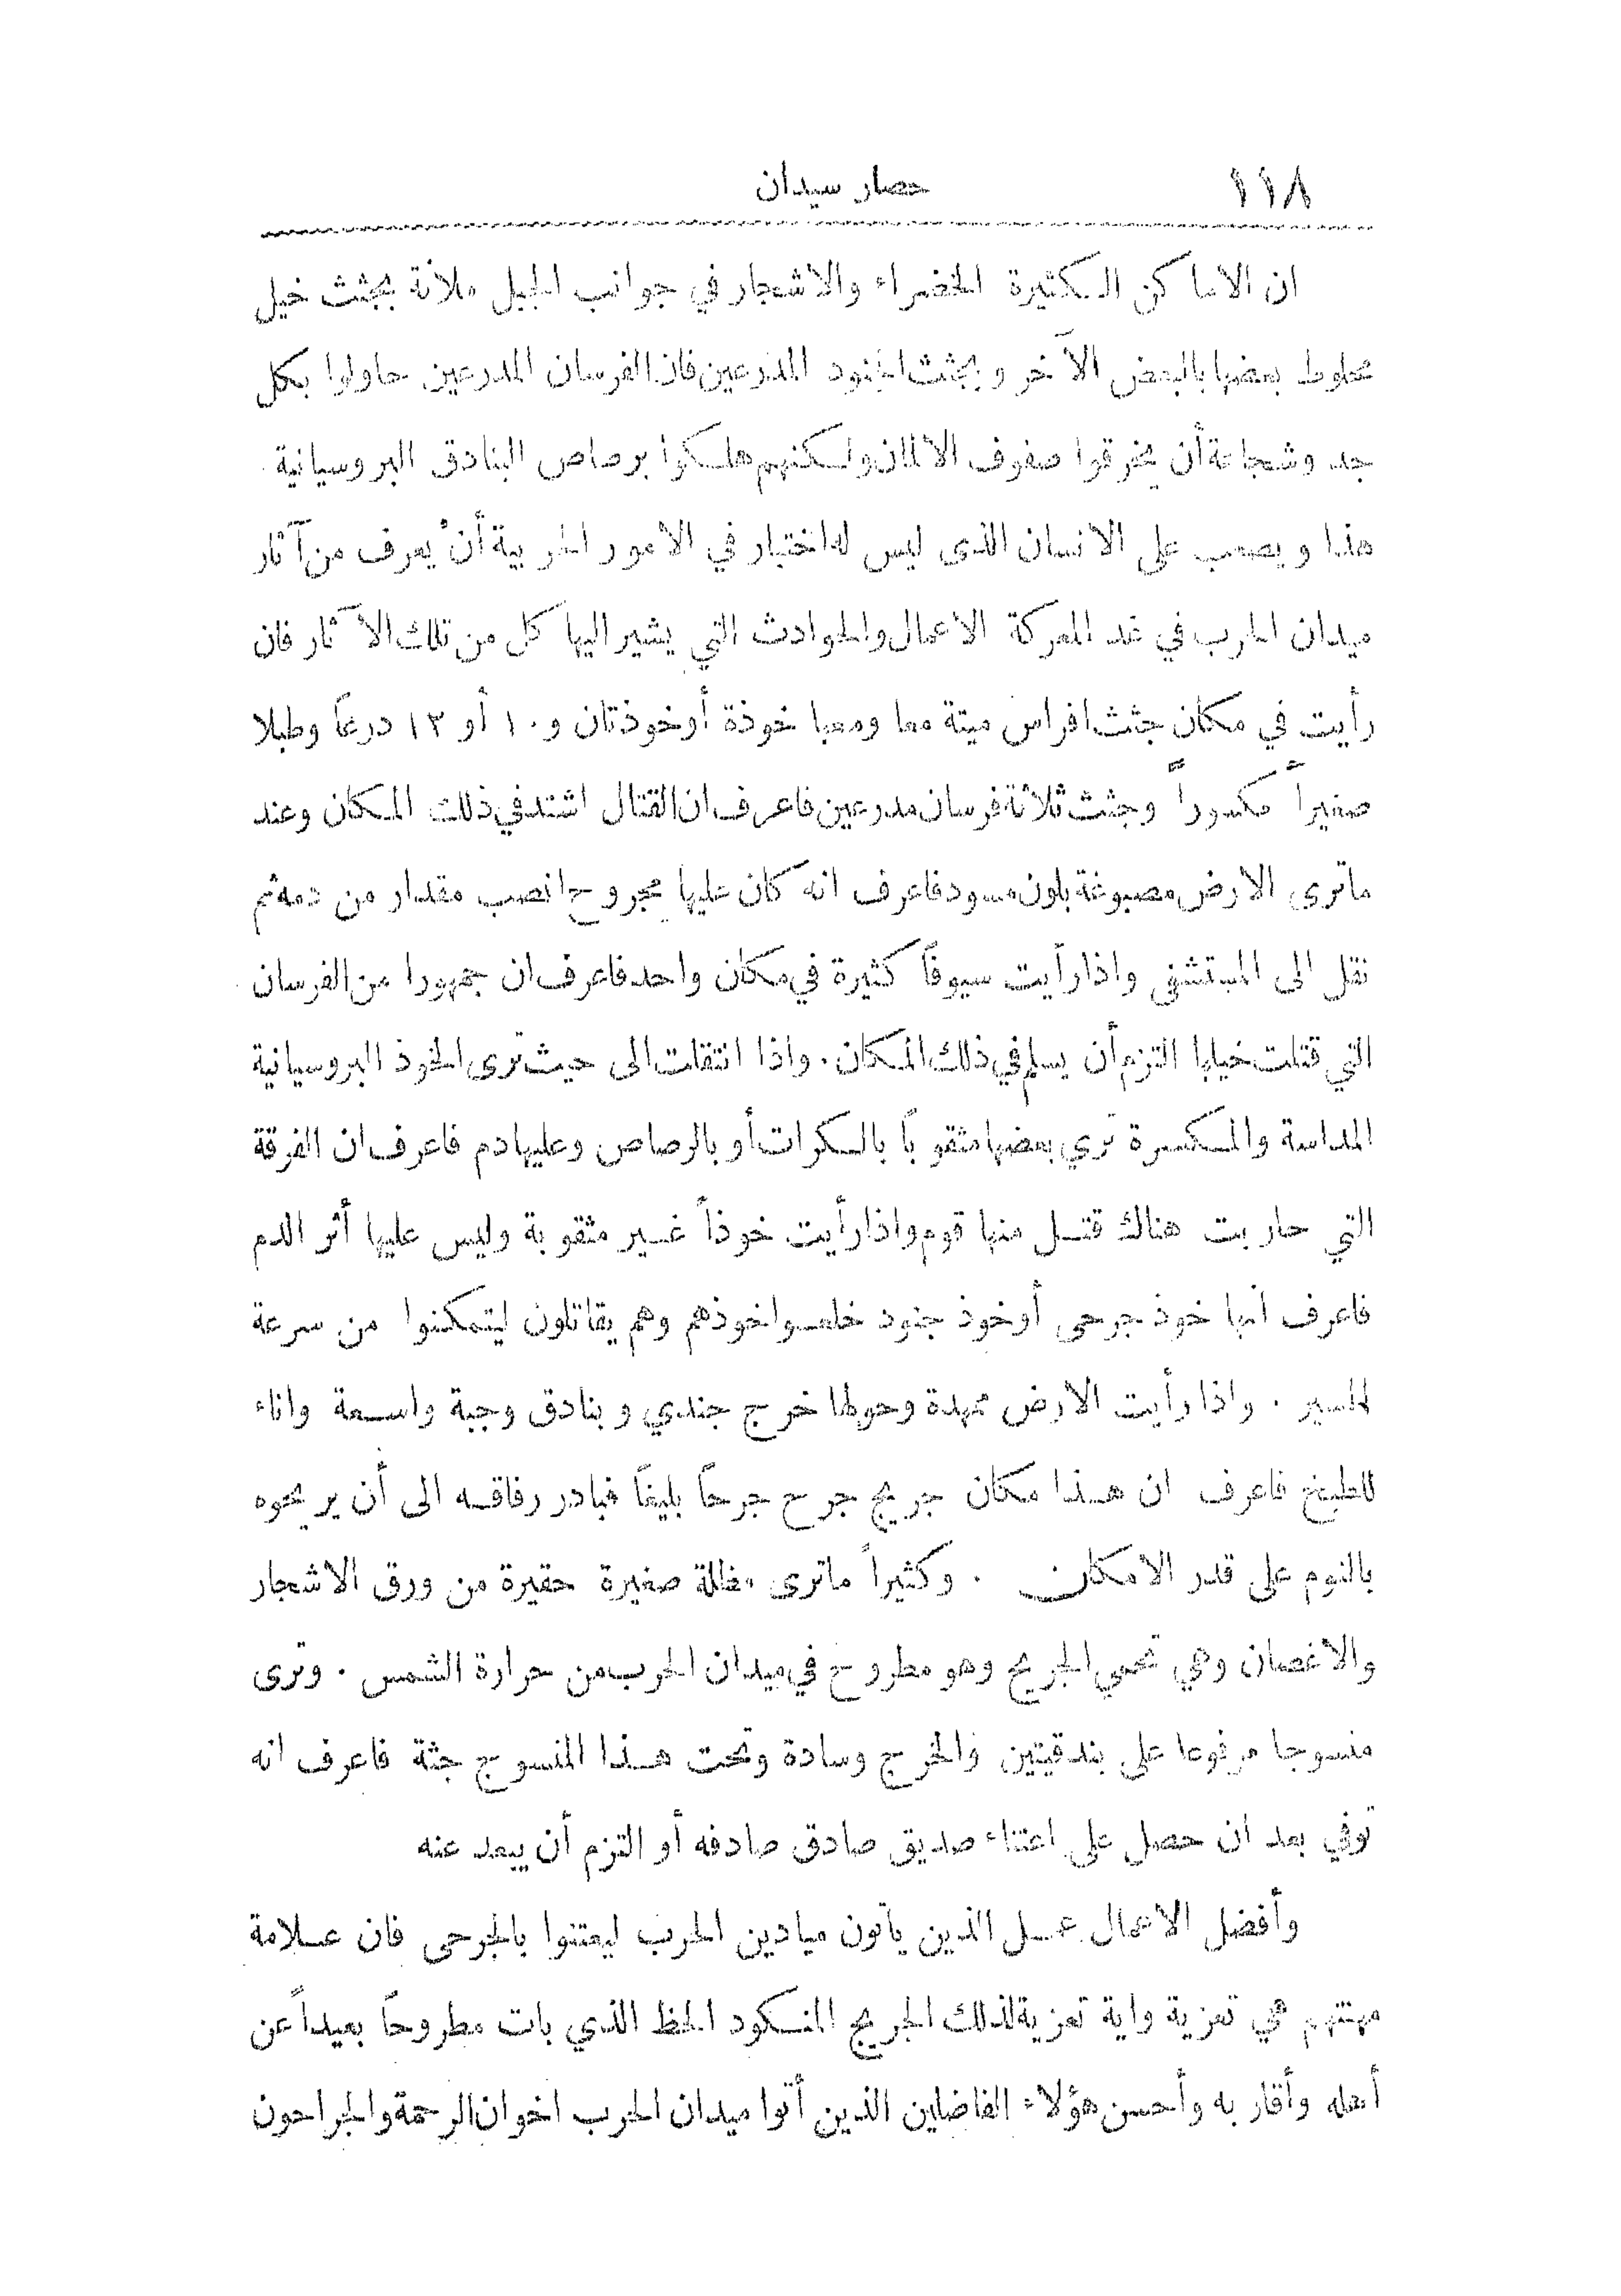 ١١٨
حصار سيدان
ان الاماكن الكثيرة الخضراء والاشجار في جوانب الجبل ملآنة بجثث خيل
مخلوط بعضها بالبعض الآخر وبجثث الجنود المدرعين فان الفرسان المدرعين حاولوا بكل
جد وشجاعة أن يخرقوا صفوف الالمان ولكنهم هلكوا برصاص البنادق البروسيانية
هذا ويصعب على الانسان الذى ليس له اختبار في الامور الحربية أن يعرف من آثار
ميدان الحرب في غد المعركة الاعمال والحوادث التي يشير اليها كل من تلك الآثار فان
رأيت في مكان جثث افراس ميتة معا ومعها خوذة أو خوذتان و ١٠ أو ١٣ درعاً وطبلا
صغيراً مكسوراً وجثث ثلاثة فرسان مدرعين فاعرف ان القتال اشتد في ذلك المكان وعند
ماترى الارض مصبوغة بلون مسود فاعرف انه كان عليها مجروح انصب مقدار من دمه ثم
نقل الى المستشفى واذا رأيت سيوفاً كثيرة في مكان واحد فاعرف ان جمهورا من الفرسان
التي قتلت خيلها التزم أن يسلم في ذلك المكان . واذا انتقلت الى حيث ترى الخوذ البروسيانية
المداسة والمكسرة ترى بعضها مثقوباً بالكرات أو بالرصاص وعليها دم فاعرف ان الفرقة
التي حاربت هناك قتل منها قوم واذا رأيت خوذاً غير مثقوبة وليس عليها أثر الدم
فاعرف انها خوذ جرحى أو خوذ جنود خلعوا خوذهم وهم يقاتلون ليتمكنوا من سرعة
المسير . واذا رأيت الارض ممهدة وحولها خرج جندي وبنادق وجبة واسعة واناء
للطبخ فاعرف ان هذا مكان جريح جرح جرحاً بليغاً فبادر رفاقه الى أن يريحوه
بالنوم على قدر الامكان . وكثيراً ماترى مظلة صغيرة حقيرة من ورق الاشجار
والاغصان وهي تحمي الجريح وهو مطروح في ميدان الحرب من حرارة الشمس . وترى
منسوجا مرفوعا على بندقيتين والخرج وسادة وتحت هذا المنسوج جثة فاعرف انه
توفي بعد ان حصل على اعتناء صديق صادق صادفه أو التزم أن يبعد عنه
وأفضل الاعمال عمل الذين يأتون ميادين الحرب ليعتنوا بالجرحى فان علامة
مهنتهم هي تعزية واية تعزية لذلك الجريح المنكود الحظ الذي بات مطروحاً بعيداً عن
أهله وأقاربه وأحسن هؤلاء الفاضلين الذين أتوا ميدان الحرب اخوان الرحمة والجراحون